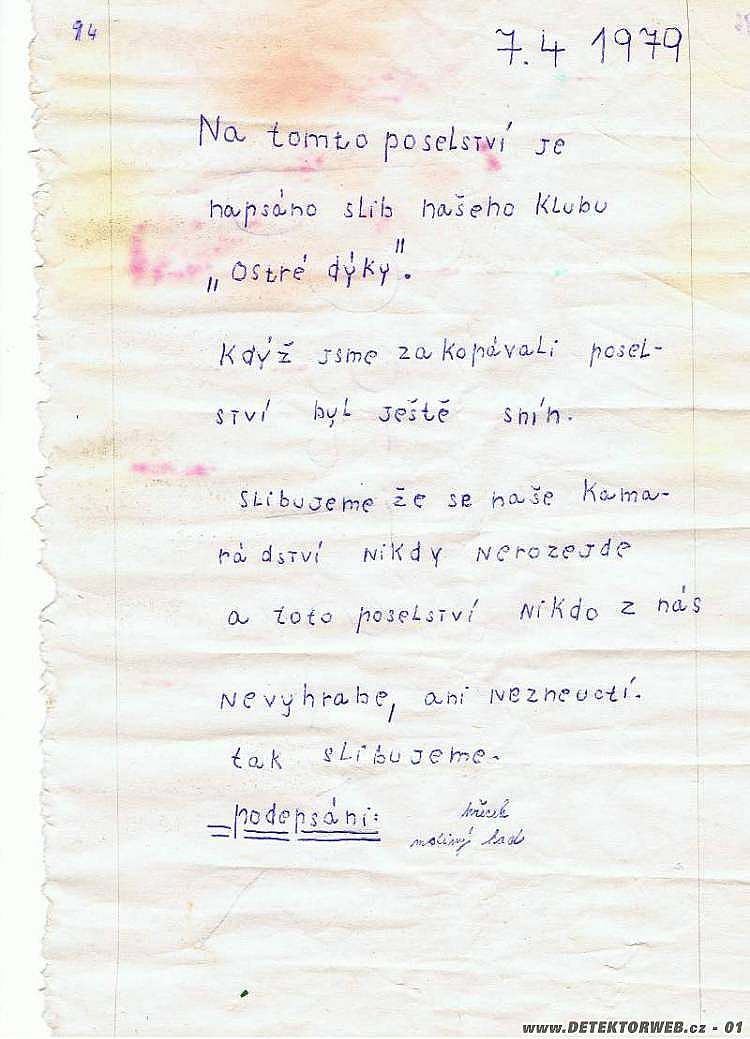 94
7.4 1979
Na tomto poselství je
napsáno slib našeho klubu
„Ostré dýky".
Když jsme zakopávali posel-
ství byl ještě sníh.
slibujeme že se naše kama-
rádství nikdy nerozejde
a toto poselství nikdo z nás
nevyhrabe, ani nezneuctí.
tak slibujeme.
podepsáni: křeček
had
www.DETEKTORWEB.cz - 01